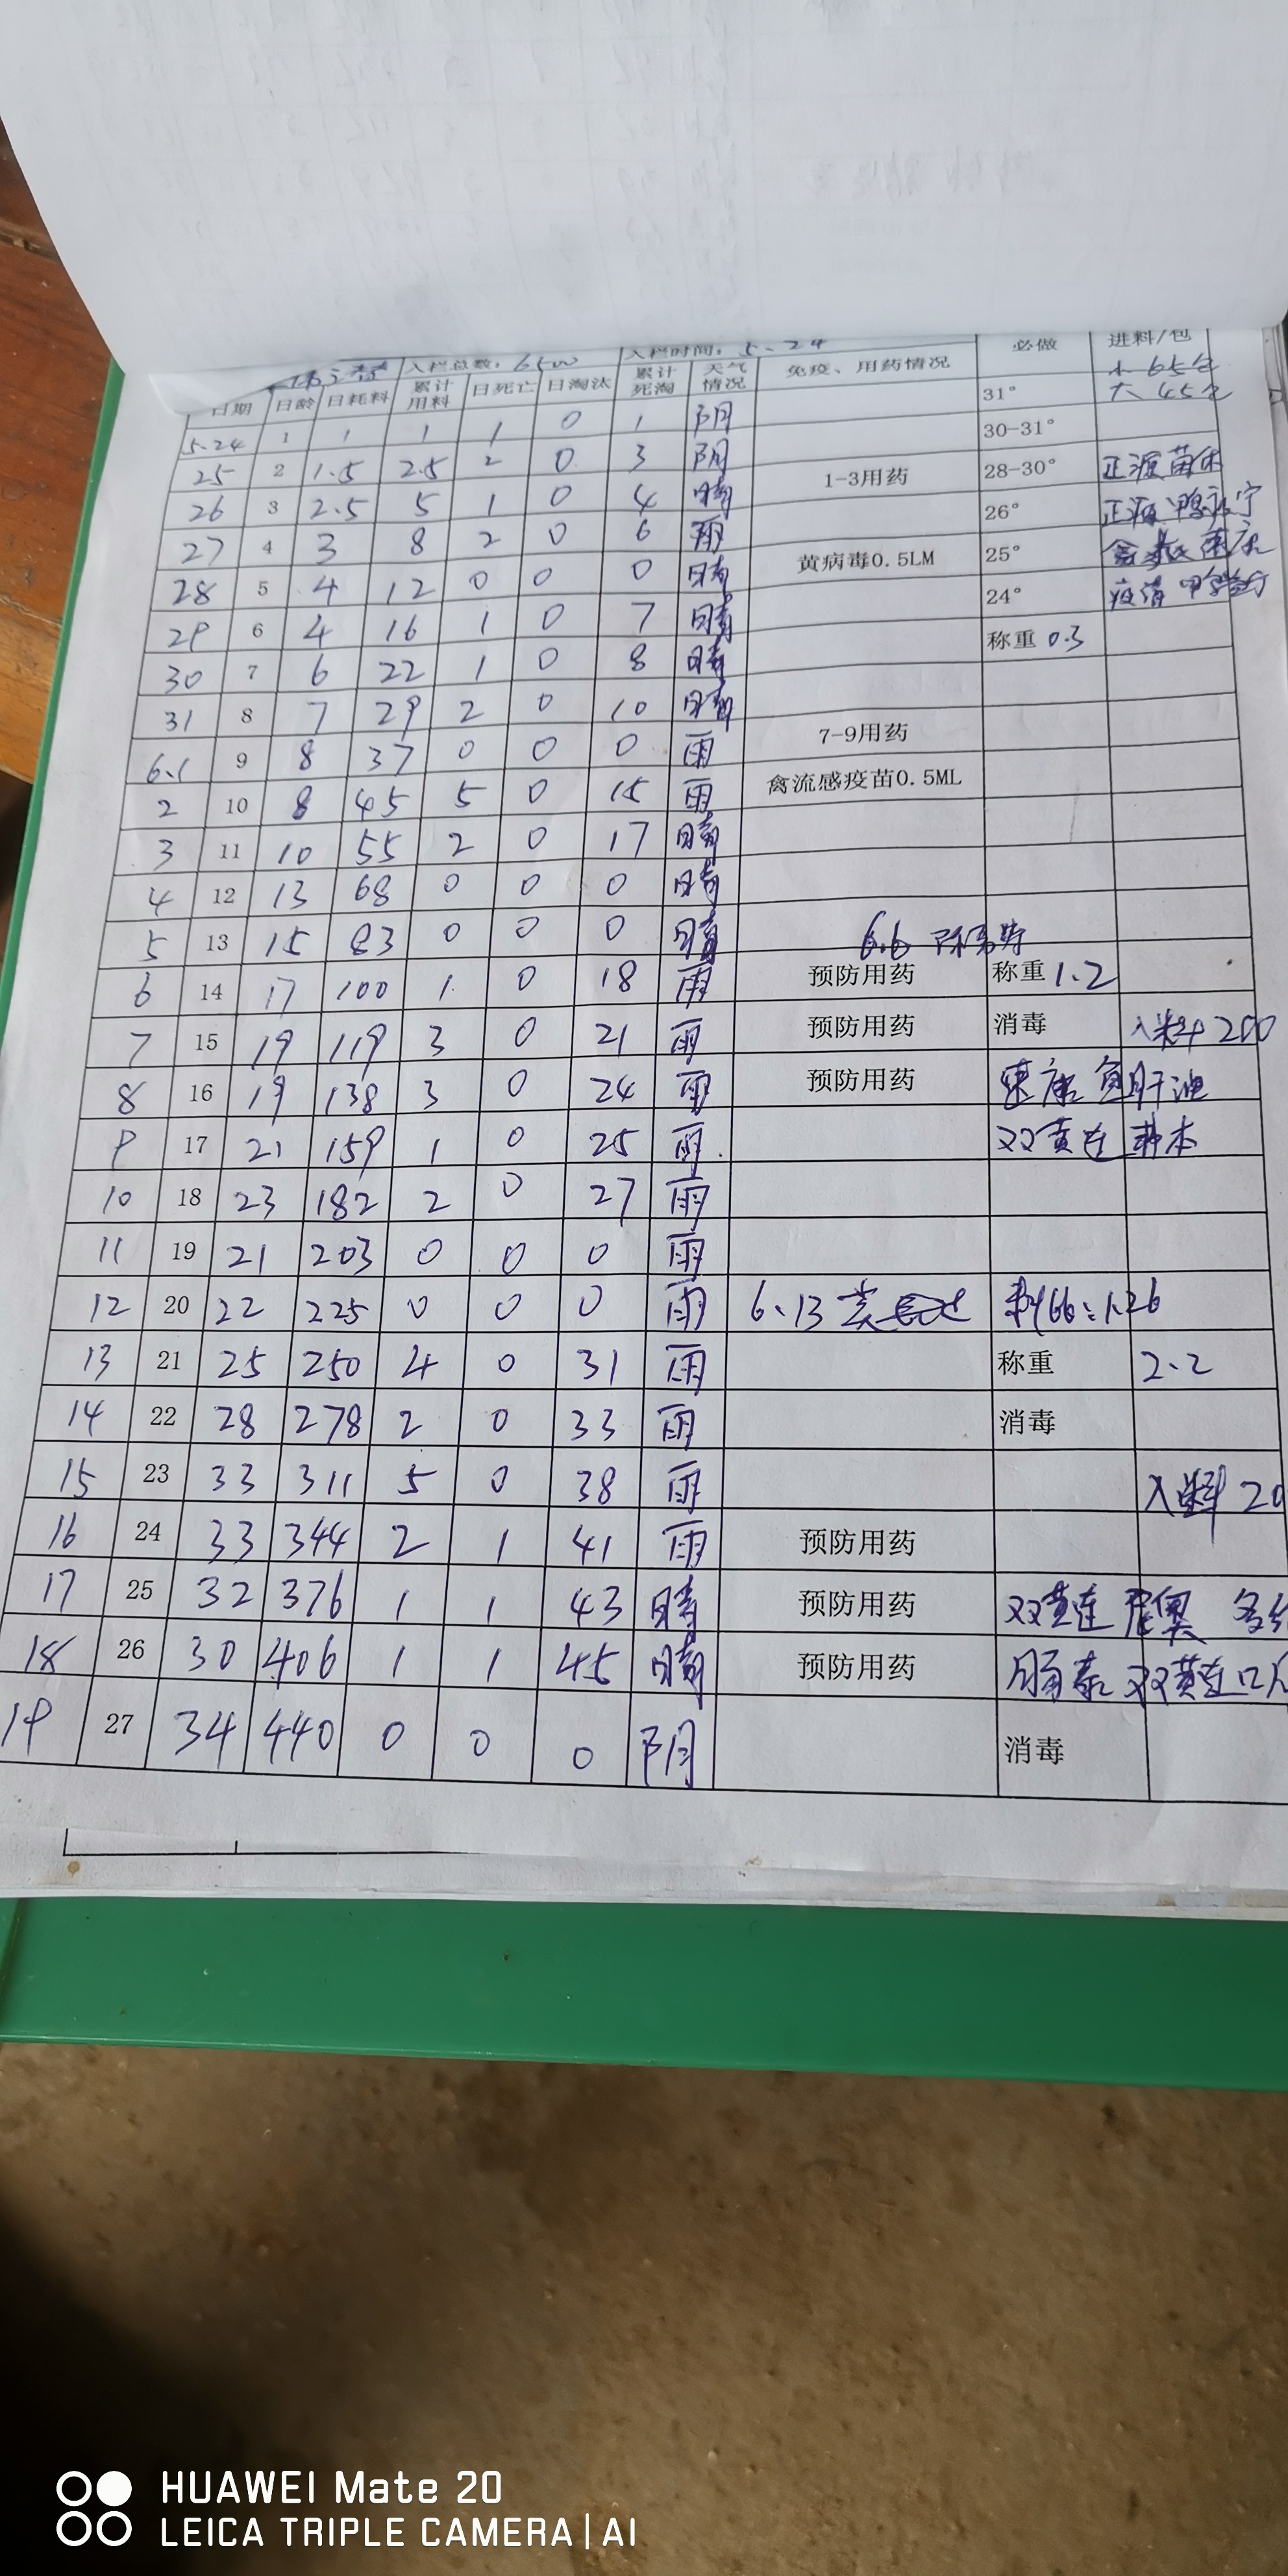 入栏总数：6500 入栏时间：5.24
日期 日龄 日耗料 累计用料 日死亡 日淘汰 累计死淘 天气情况 免疫、用药情况 必做 进料/包
小 65包
5.24 1 1 1 1 0 1 阴 31° 大 45包
25 2 1.5 2.5 2 0 3 阴 30-31°
26 3 2.5 5 1 0 4 晴 1-3用药 28-30° 正源
27 4 3 8 2 0 6 雨 26° 正源
28 5 4 12 0 0 0 晴 黄病毒0.5LM 25°
29 6 4 16 1 0 7 晴 24°
30 7 6 22 1 0 8 晴 称重 0.3
31 8 7 29 2 0 10 晴
6.1 9 8 37 0 0 0 雨 7-9用药
2 10 8 45 5 0 15 雨 禽流感疫苗0.5ML
3 11 10 55 2 0 17 晴
4 12 13 68 0 0 0 晴
5 13 15 83 0 0 0 晴 6.6
6 14 17 100 1 0 18 雨 预防用药 称重 1.2
7 15 19 119 3 0 21 雨 预防用药 消毒 入料 200
8 16 19 138 3 0 24 雨 预防用药 康 鱼肝油
9 17 21 159 1 0 25 雨 双黄连
10 18 23 182 2 0 27 雨
11 19 21 203 0 0 0 雨
12 20 22 225 0 0 0 雨 6.13 料166：1.26
13 21 25 250 4 0 31 雨 称重 2.2
14 22 28 278 2 0 33 雨 消毒
15 23 33 311 5 0 38 雨 入料 20
16 24 33 344 2 1 41 雨 预防用药
17 25 32 376 1 1 43 晴 预防用药 双黄连
18 26 30 406 1 1 45 晴 预防用药 肠泰 双黄连口
19 27 34 440 0 0 0 阴 消毒
HUAWEI Mate 20
LEICA TRIPLE CAMERA | AI